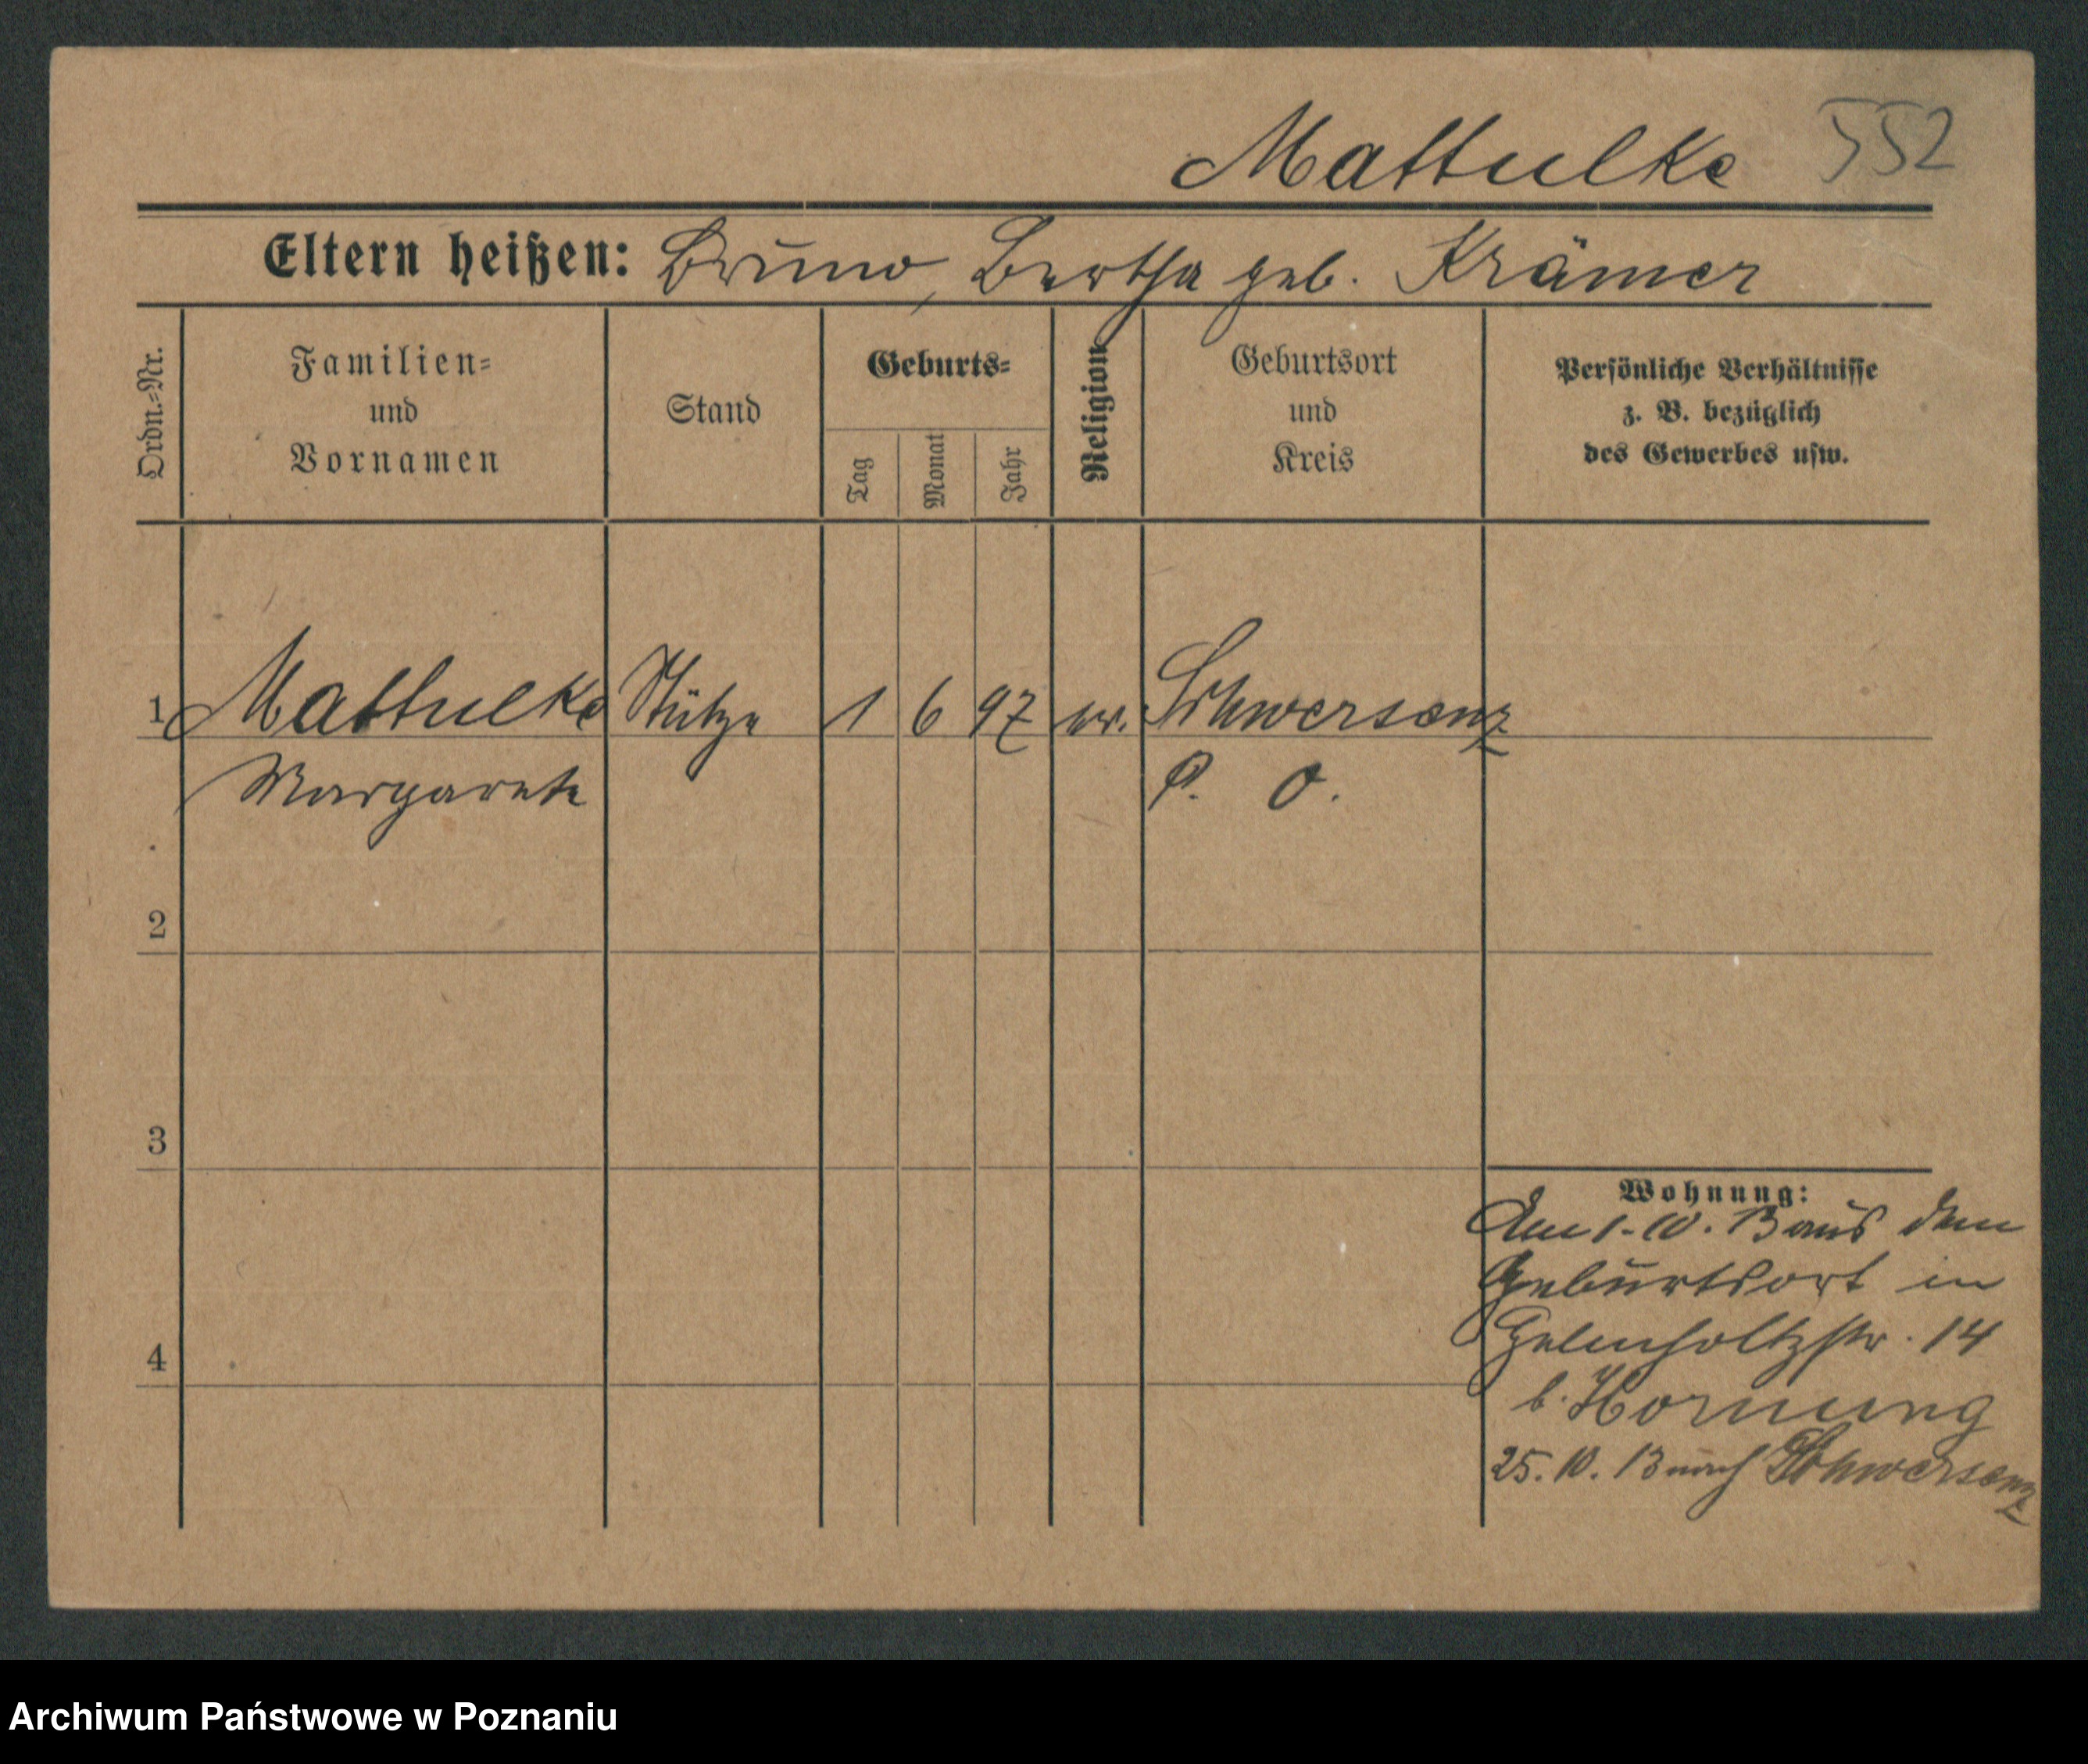 Mattulke 552
Eltern heißen: Bruno, Bertha geb. Krämer
Ordn.=Nr.
Familien=
und
Vornamen
Stand
Geburts=
Tag
Monat
Jahr
Religion
Geburtsort
und
Kreis
Persönliche Verhältnisse
z. B. bezüglich
des Gewerbes usw.
1 Mattulke Stütze 1 6 97 ev. Schwersenz
Margarete P. O.
2
3
4
Wohnung:
Am 1.10.13 aus dem
Geburtsort in
Helmholtzstr. 14
b. Hornung
25.10.13 nach Schwersenz
Archiwum Państwowe w Poznaniu